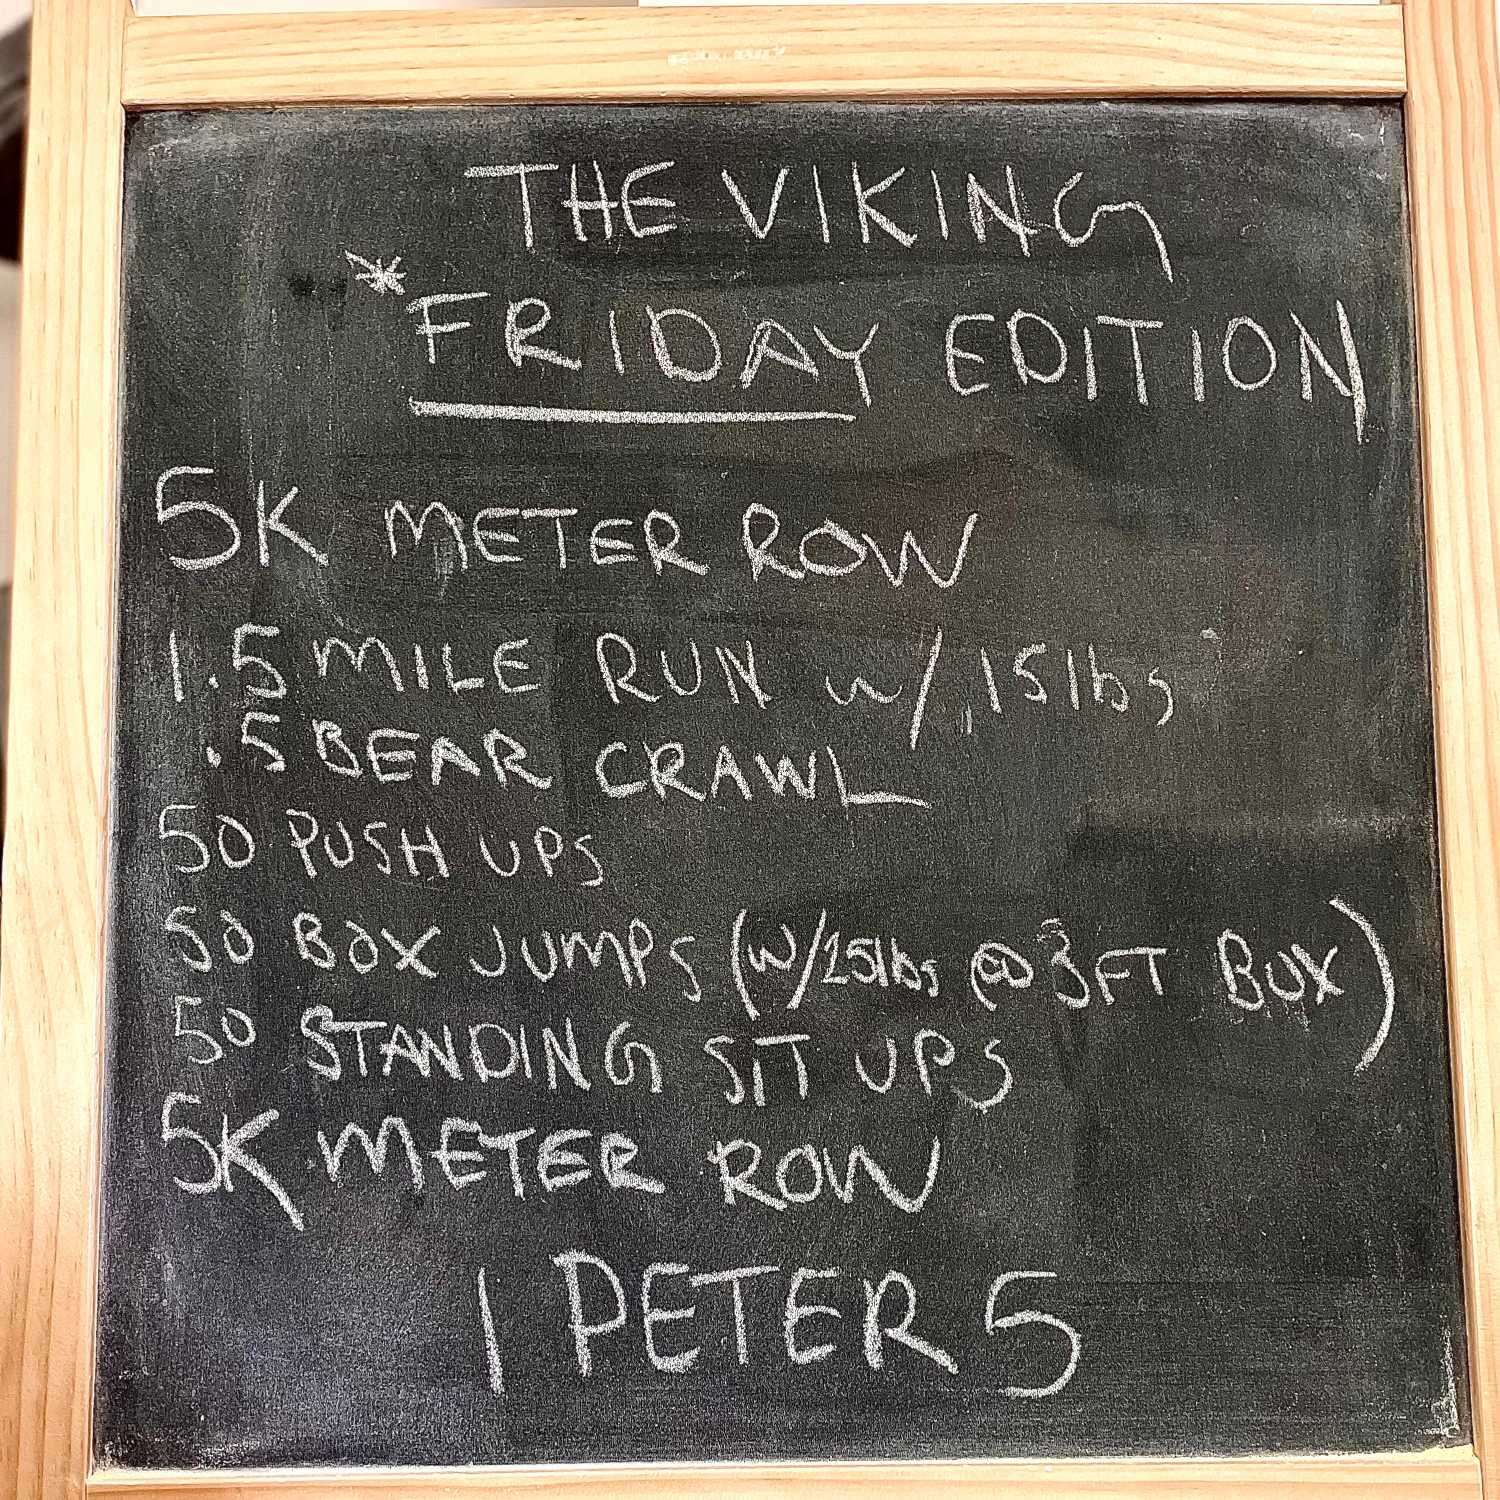 THE VIKING
*FRIDAY EDITION
5K METER ROW
1.5 MILE RUN w/ 15lbs
.5 BEAR CRAWL
50 PUSH UPS
50 BOX JUMPS (W/25lbs @ 3FT BOX)
50 STANDING SIT UPS
5K METER ROW
1 PETER 5